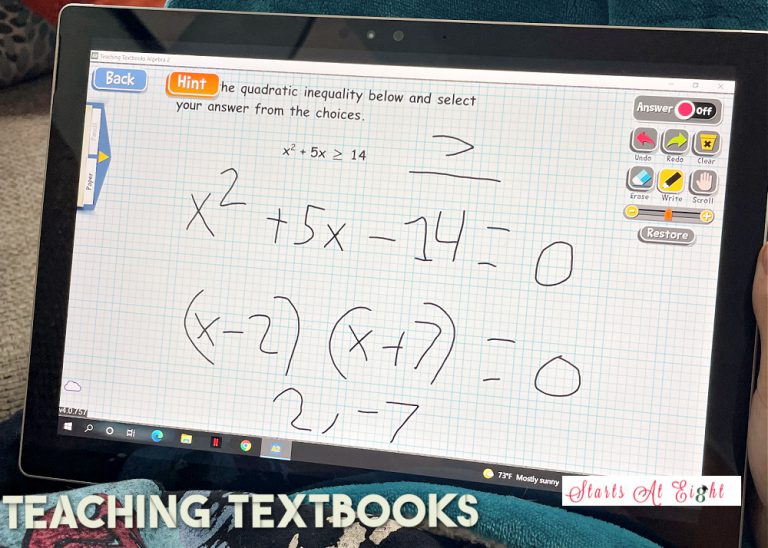 Teaching Textbooks Algebra 2
Back
Hint he quadratic inequality below and select
your answer from the choices.
Answer Off
Undo Redo Clear
Erase Write Scroll
Restore
Paper
x² + 5x ≥ 14
>
x² + 5x - 14 = 0
(x - 2) (x + 7) = 0
2, -7
v4.0.757
A2
73°F Mostly sunny
Starts At Eight
TEACHING TEXTBOOKS